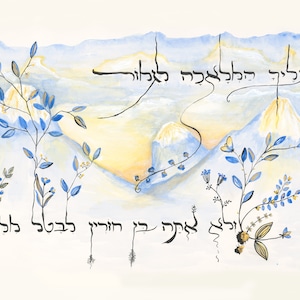 ליך המלאכה לגמור
ולא אתה בן חורין לבטל